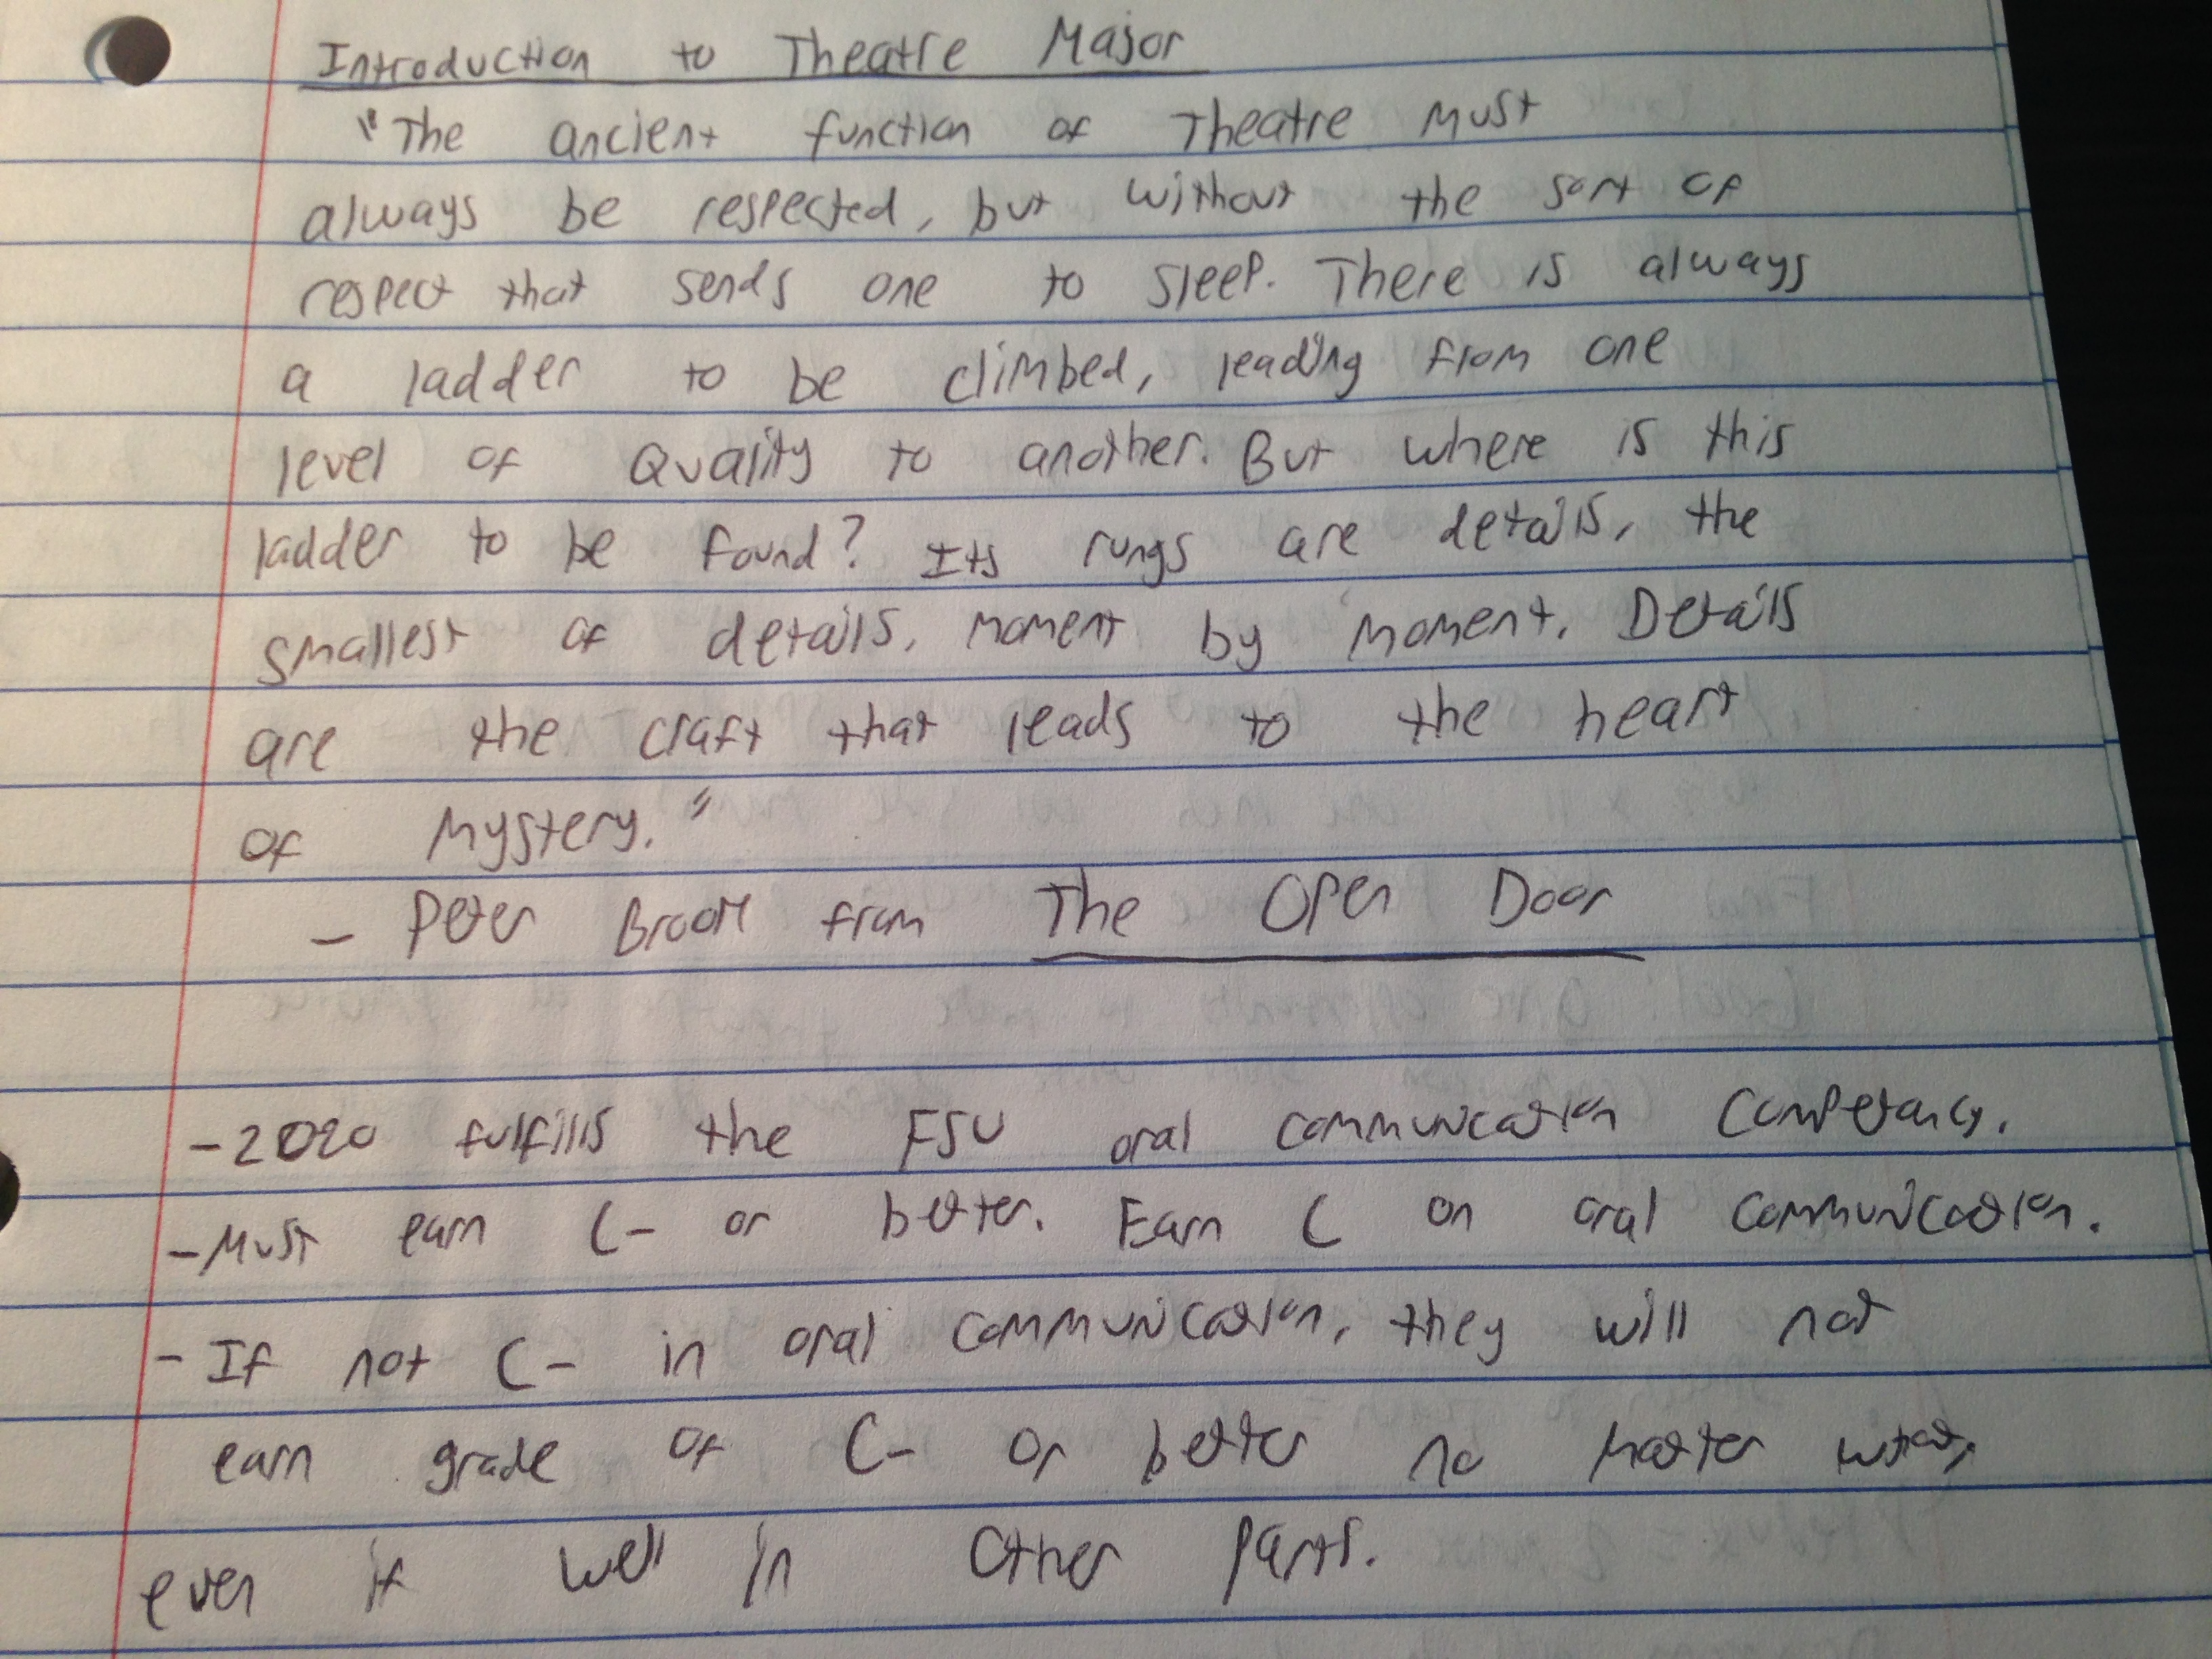 Introduction to Theatre Major
"The ancient function of Theatre must
always be respected, but without the sort of
respect that sends one to sleep. There is always
a ladder to be climbed, leading from one
level of Quality to another. But where is this
ladder to be found? Its rungs are details, the
smallest of details, moment by moment. Details
are the craft that leads to the heart
of Mystery."
- Peter Brook from The Open Door
- 2020 fulfills the FSU oral communication Competancy.
- Must earn C- or better. Earn C on oral communication.
- If not C- in oral communication, they will not
earn grade of C- or better no matter what,
even if well in other parts.